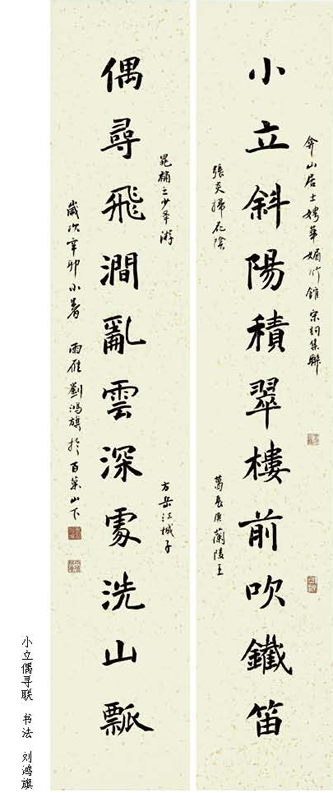 弇山居士娉華媚竹館宋詞集聯
小立斜陽積翠樓前吹鐵笛
張炎掃花
葛長庚蘭陵王
晁補之少年游
方岳江城子
偶尋飛澗亂雲深處洗山瓢
歲次辛卯小暑 雨雁劉鴻旗於百菓山下
小立偶寻联 书法 刘鸿旗